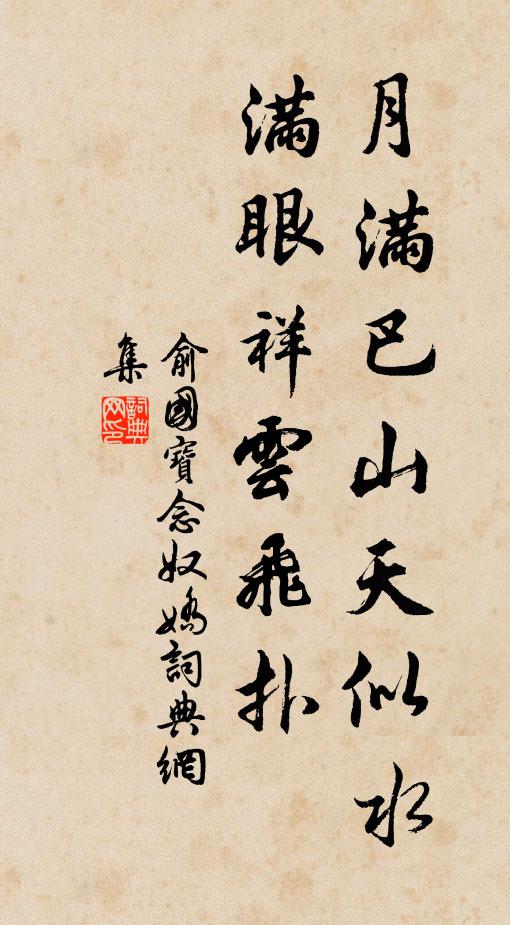 月滿巴山天似水
滿眼祥雲飛扑
俞國寶念奴嬌詞典網
集
詞典
网印